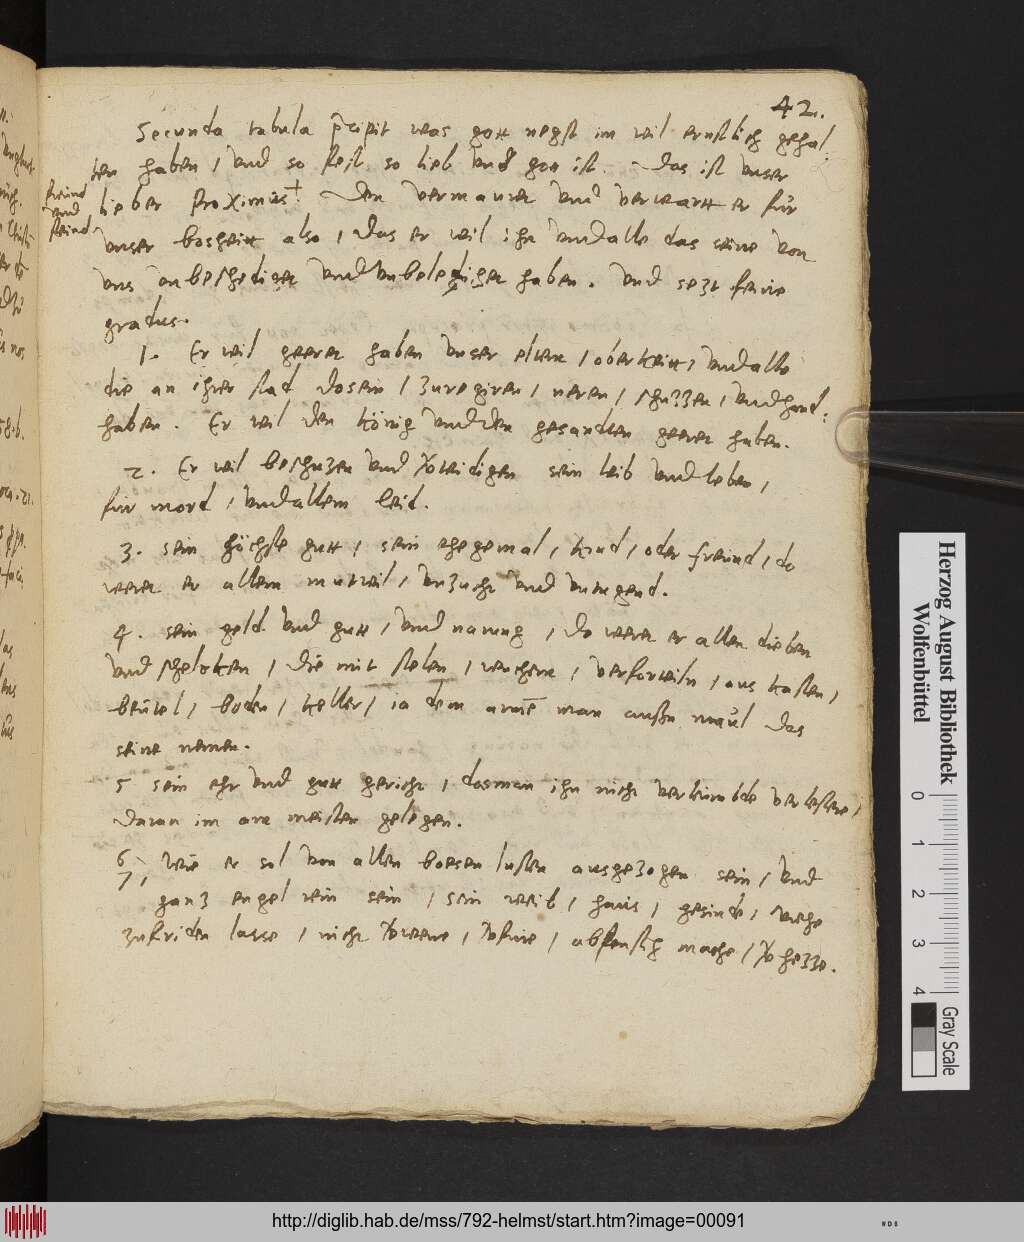 42.
Secunda tabula p̄cipit was gott negst im wil ernstlich gehal
ten haben / vnd so fest so lieb vnd got ist. Das ist vnser
lieber Proximus +. Den vermauret vnd verwartt er für
freind
vnd
feind.
vnser bosheitt also / das er wil ihn vnd alle das seine von
vns vnbeschediget vnd vnbelediget haben. vnd sezt feine
gradus.
1. Er wil geeret haben vnser eltern / oberkeitt / vnd alle
die an ihrer stad do sein / zu regiren / neren / schuzzen / vnd hand
haben. Er wil den könig vnd den gesandten geeret haben.
2. Er wil beschuzen vnd v̄teidigen sein leib vnd leben /
für mord / vnd allem leid.
3. sein höchste gutt / sein ehegemal / kind / oder freund / do
weret er allem mutwil / vnzucht vnd vntugend.
4. sein geld vnd gutt / vnd narung / do weret er allen dieben
vnd schelcken / die mit stelen / wuchern / verforteiln / aus kasten /
beütel / boden / keller / ia dem armē man außm maul das
seine nemen.
5 sein ehr vnd gutt gericht / das man ihn nicht verleumbde verlestere /
daran im am meisten gelegen.
6
7, Wie er sol von allen boesen lusten ausgezogen sein / vnd
ganz engel rein sein / sein weib / haus / gesinde / viehe
zufriden lasse / nicht / v̄fure / abspenstig mache / v̄hezze.
Herzog August Bibliothek
Wolfenbüttel
0 1 2 3 4
Gray Scale
http://diglib.hab.de/mss/792-helmst/start.htm?image=00091